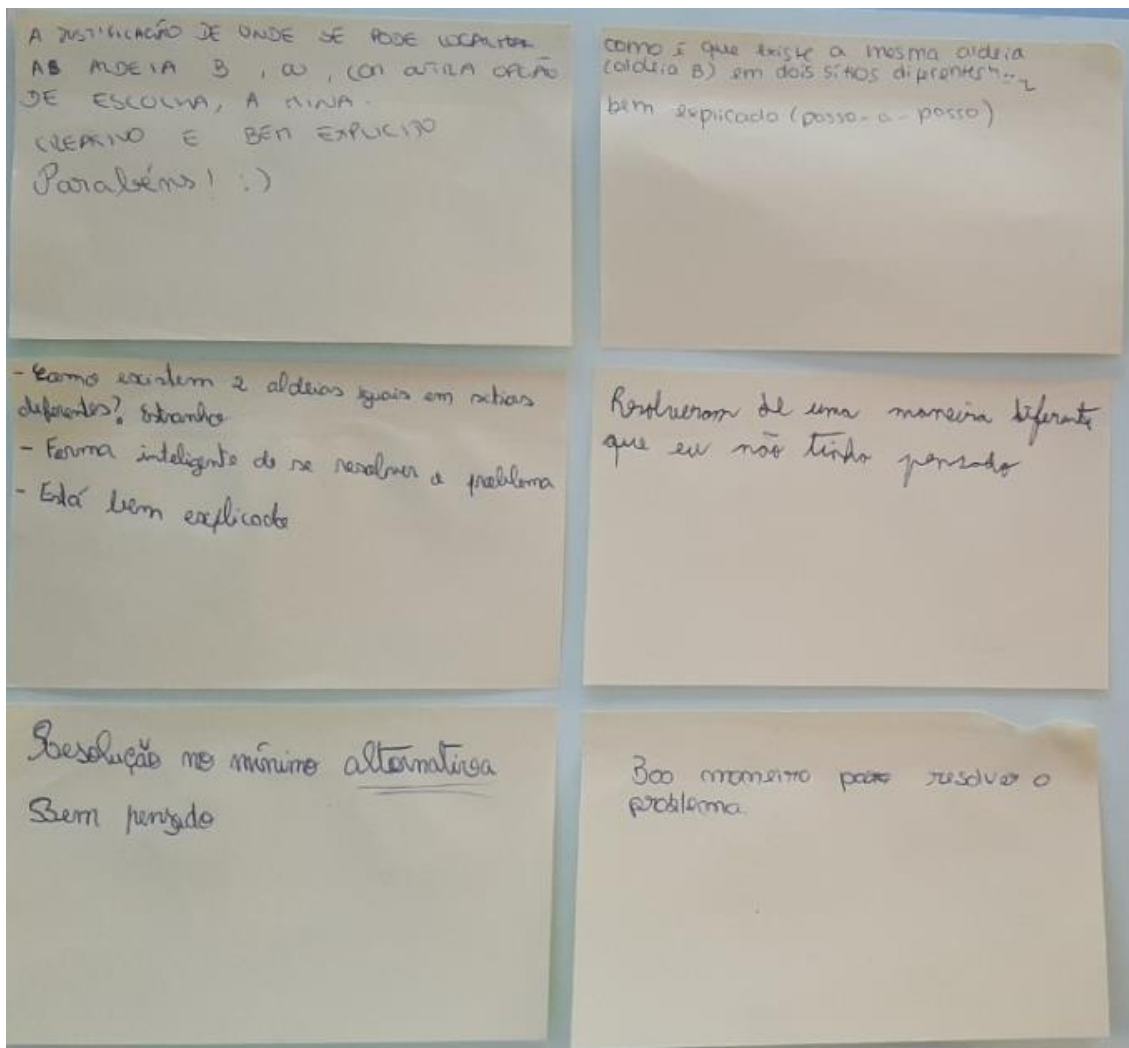 A JUSTIFICAÇÃO DE ONDE SE PODE LOCALIZAR
AB ALDEIA B, OU, COM OUTRA OPÇÃO
DE ESCOLHA, A MINA.
CREATIVO E BEM EXPLICITO
Parabéns! :)
como é que existe a mesma aldeia
(aldeia B) em dois sítios diferentes
bem explicado (passo-a-passo)
- Como existem 2 aldeias iguais em sitios
diferentes? Estranho
- Forma inteligente de se resolver o problema
- Está bem explicado
Resolveram de uma maneira diferente
que eu não tinha pensado
Resolução no mínimo alternativa
Bem pensado
Boa maneira para resolver o
problema.